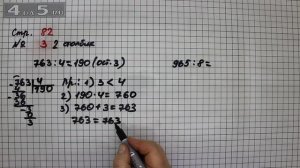 Стр. 82
№ 3 2 столбик
763 : 4 = 190 (ост. 3)
965 : 8 =
763 4
4 190
36
36
3
0
3
Пр.: 1) 3 < 4
2) 190 · 4 = 760
3) 760 + 3 = 763
763 = 763